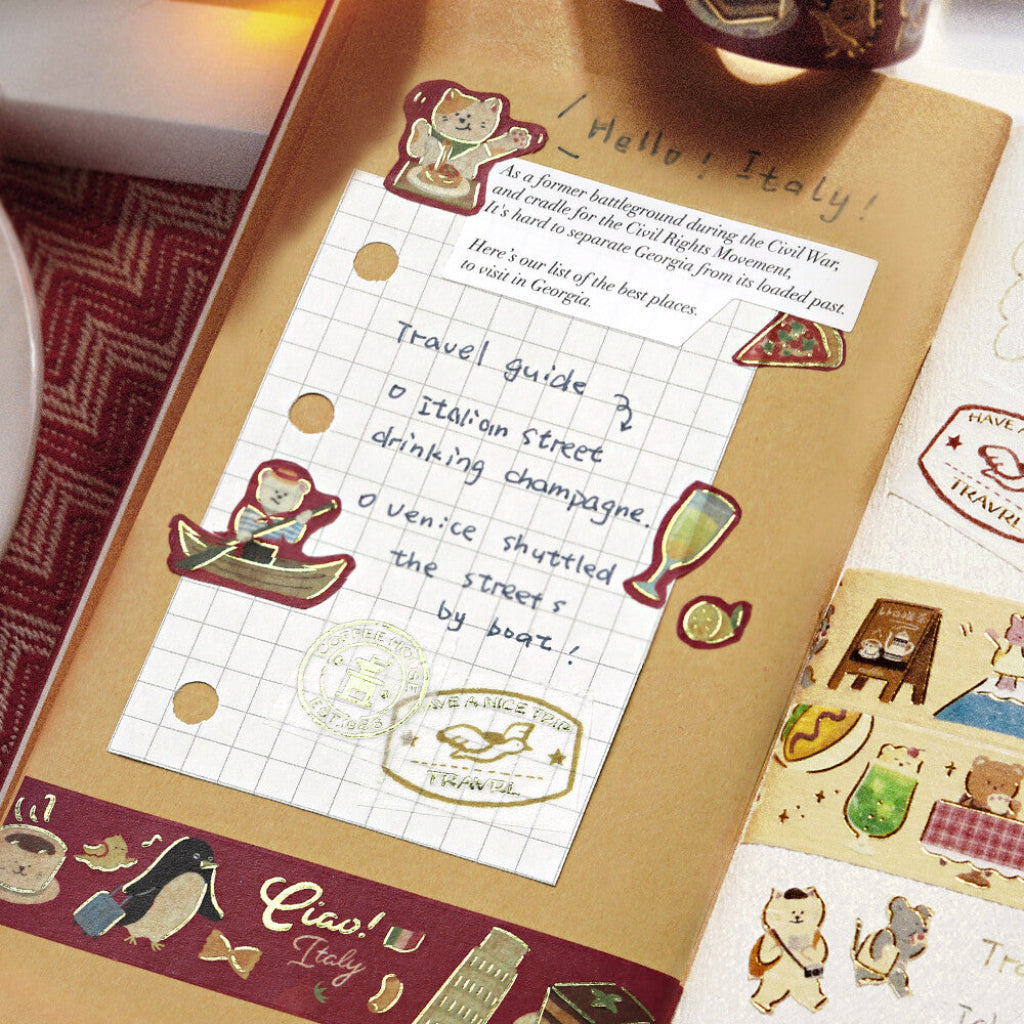 Hello! Italy!
As a former battleground during the Civil War,
and cradle for the Civil Rights Movement,
It's hard to separate Georgia from its loaded past.
Here's our list of the best places.
to visit in Georgia.
Travel guide
o Italian street
drinking champagne.
o venice shuttled
the streets
by boat!
COFFEE HOUSE
HAVE A NICE TRIP
TRAVRL
HAVE A
TRAVRL
Ciao!
Italy
Tra